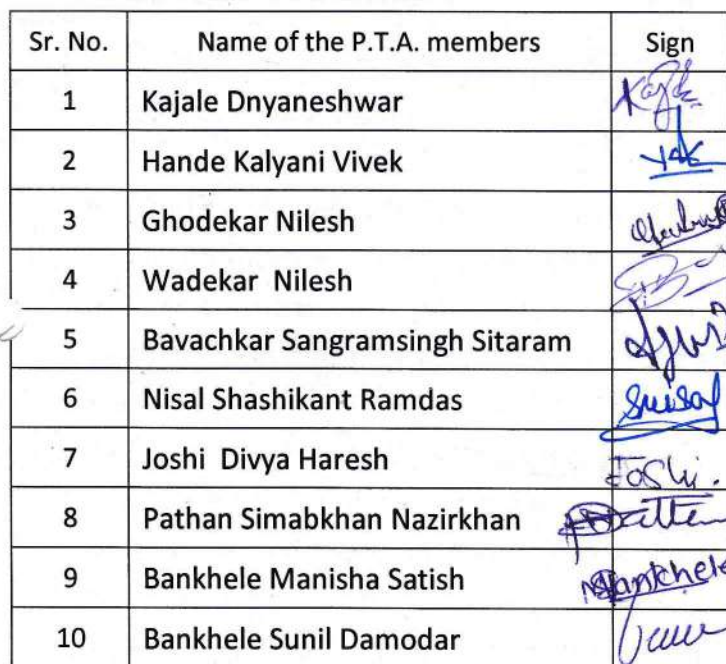 Sr. No. Name of the P.T.A. members Sign
1 Kajale Dnyaneshwar
2 Hande Kalyani Vivek
3 Ghodekar Nilesh
4 Wadekar Nilesh
5 Bavachkar Sangramsingh Sitaram
6 Nisal Shashikant Ramdas
7 Joshi Divya Haresh Joshi.
8 Pathan Simabkhan Nazirkhan
9 Bankhele Manisha Satish
10 Bankhele Sunil Damodar